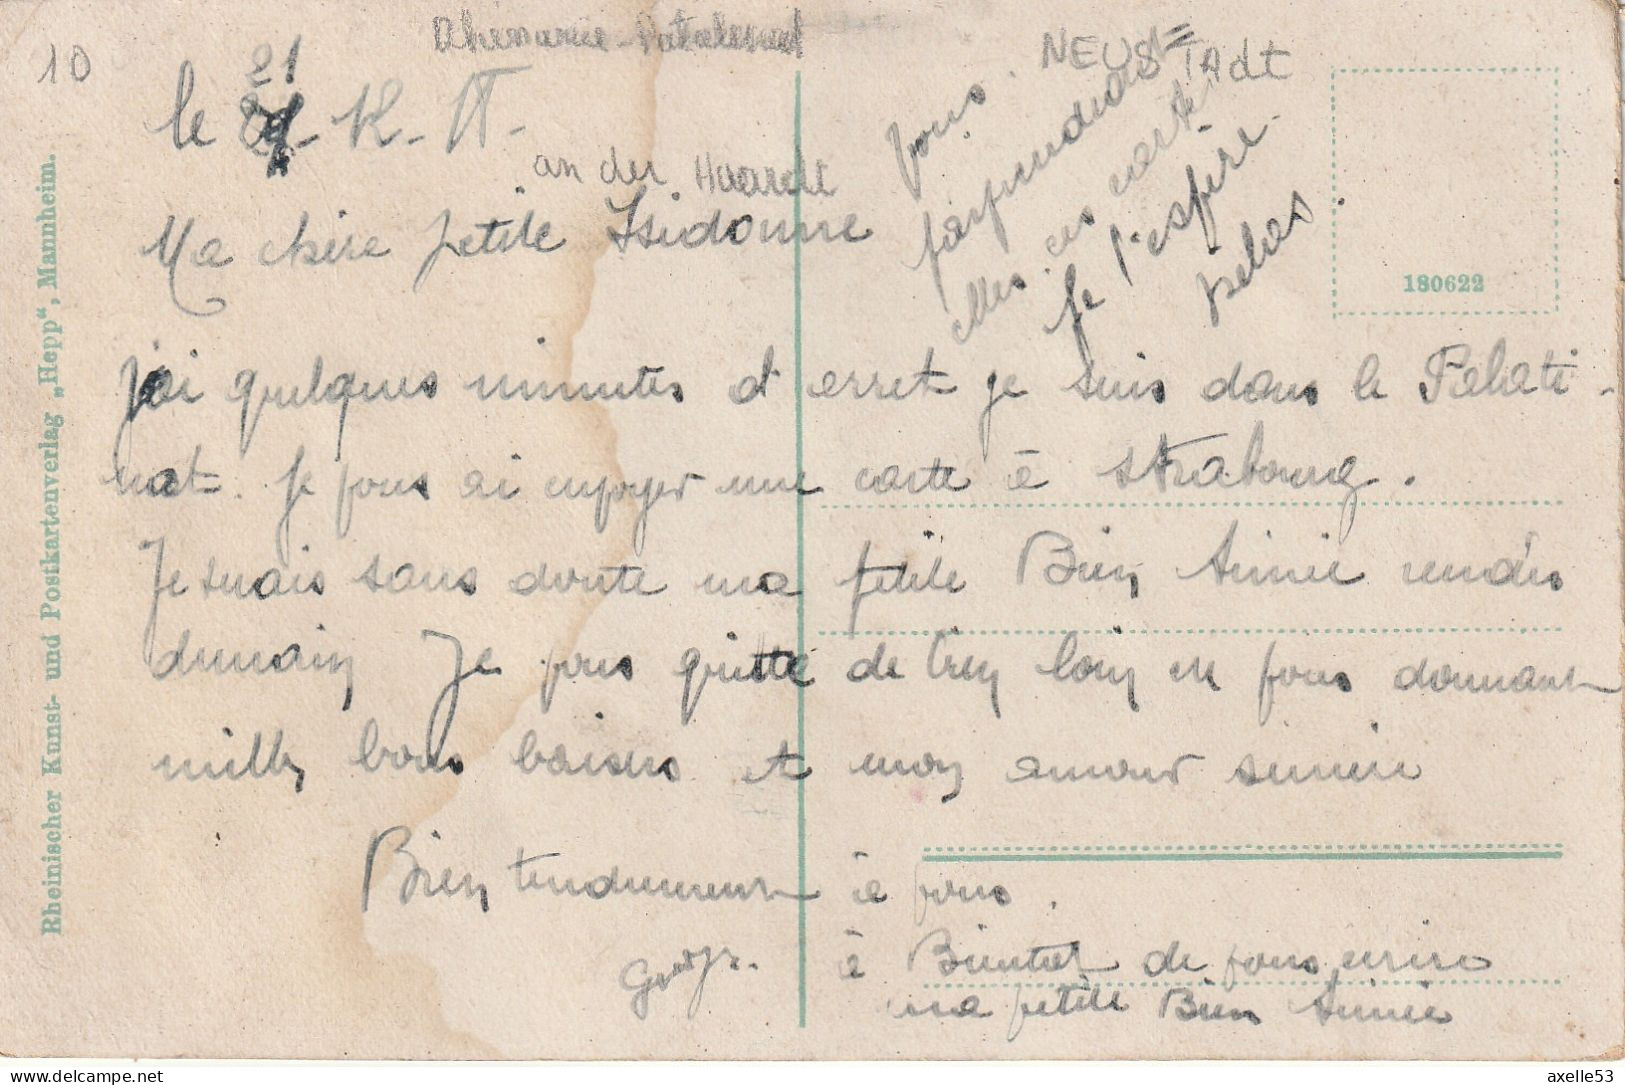 10
Rhenanie-Palatinat
NEUSTAdt
an der Haardt
le 21 - K - 17 -
Ma chère petite Isidonne
j'ai quelques minutes d'arret je suis dans le Palati-
nat. Je vous ai envoyer une carte à Strabourg.
Je suais sans doute ma petite Bien Aimée rendu
demain Je vous quitte de trey loin en vous donnant
mille bons baisers et mon amour
Bien tendrement à vous.
à Bientot de vous
ma petite Bien Aimée
vous
elles ces carte
Je l'espère
180622
Rheinischer Kunst- und Postkartenverlag „Hepp“, Mannheim.
axelle53